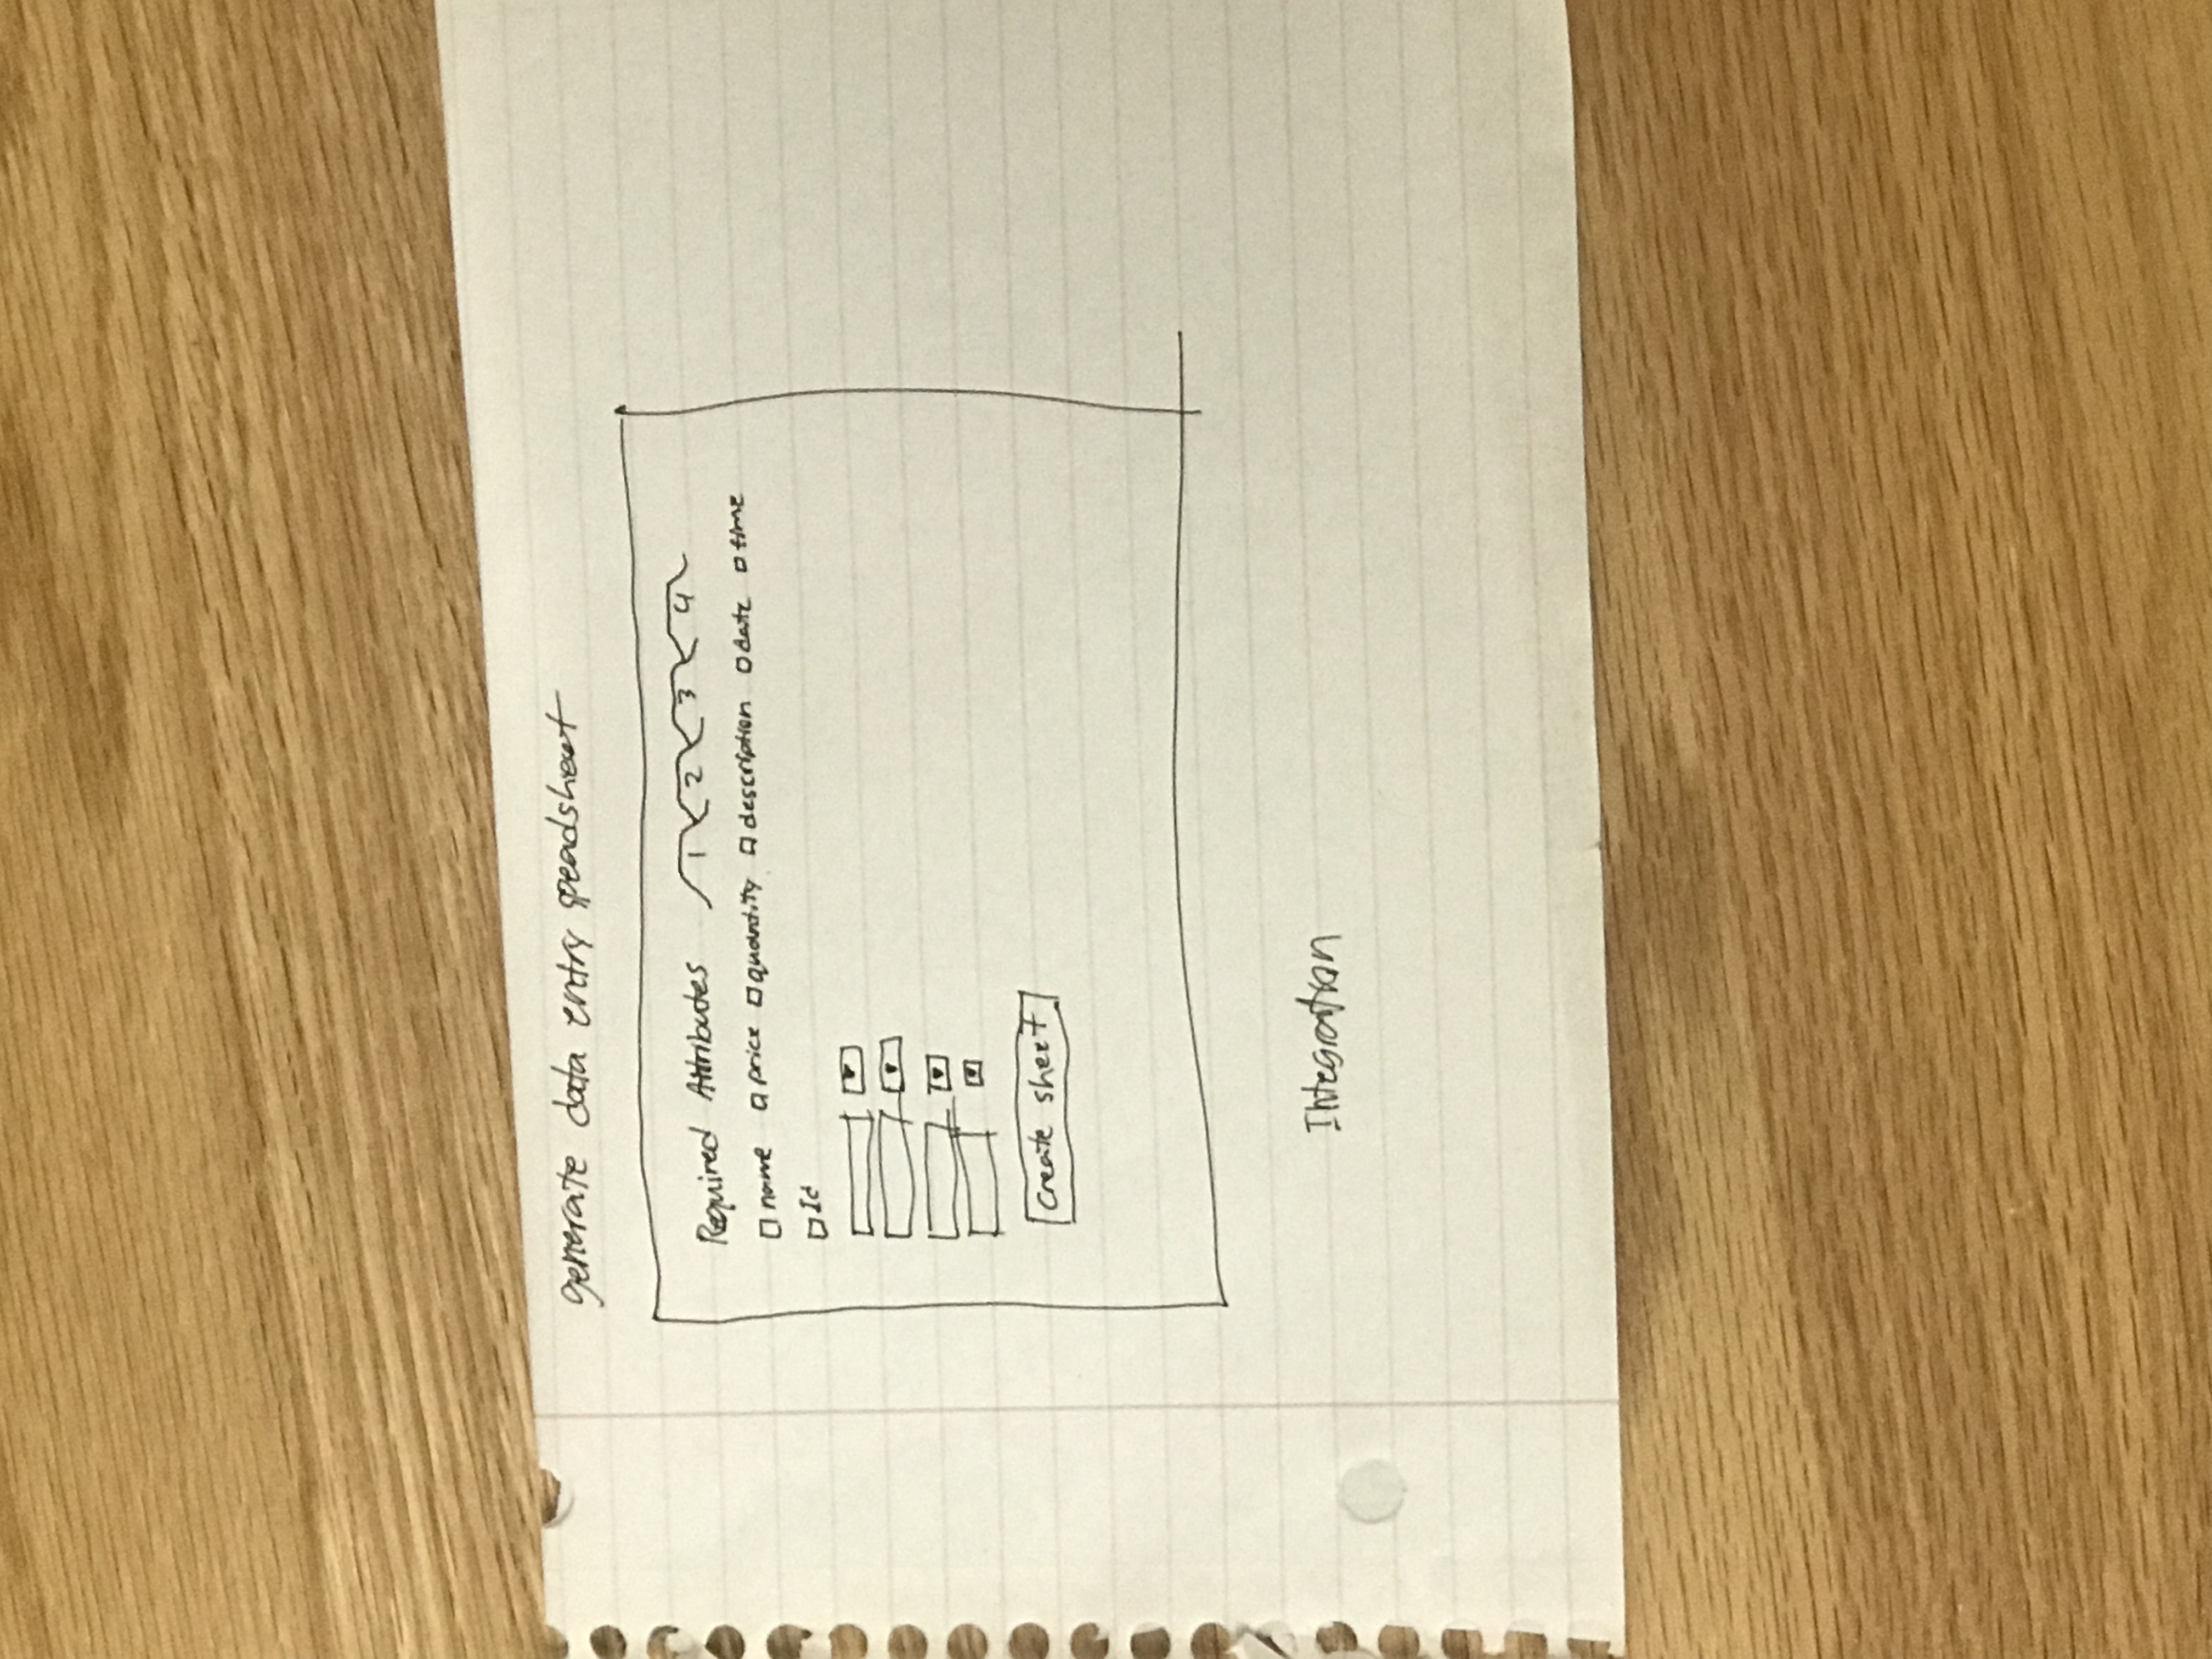 generate data entry speadsheet
Required Attributes 1 2 3 4
name price quantity description date time
Id
Create sheet
Integration